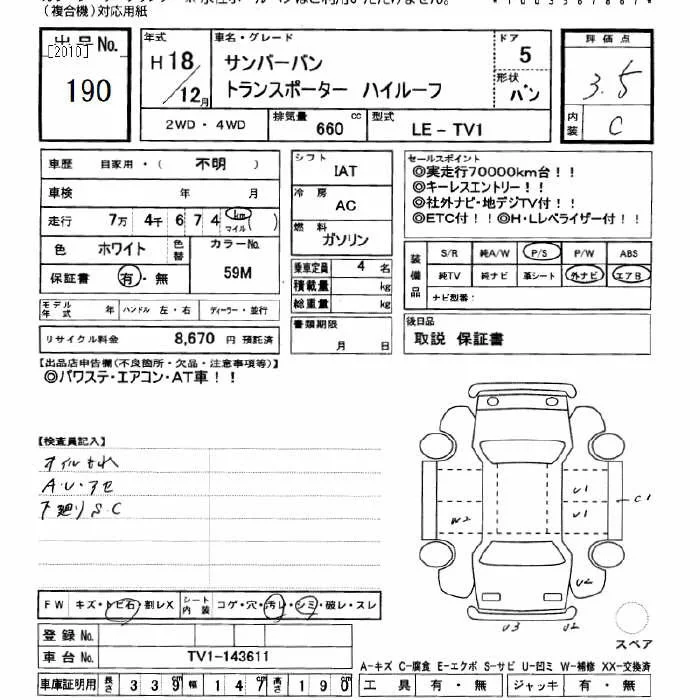 (複合機)対応用紙
出品No.
[2010]
190
年式 車名・グレード ドア 評価点
H18/12月 サンバーバン 5 3.5
トランスポーター ハイルーフ 形状 バン
内装 C
2WD・4WD 排気量 660 cc 型式 LE-TV1
車歴 自家用・( 不明 )
車検 年 月
走行 7万 4千 6 7 4 km マイル ( )
色 ホワイト 色替 カラーNo. 59M
保証書 有・無
モデル年式 年 ハンドル 左・右 ディーラー・並行
リサイクル料金 8,670 円 預託済
シフト IAT
冷房 AC
燃料 ガソリン
乗車定員 4 名
積載量 kg
総重量 kg
書類期限 月 日
セールスポイント
◎実走行70000km台!!
◎キーレスエントリー!!
◎社外ナビ・地デジTV付!!
◎ETC付!!◎H・Lレベライザー付!!
装備品 S/R 純A/W P/S P/W ABS
純TV 純ナビ 革シート 外ナビ エアB
ナビ型番:
後日品
取説 保証書
【出品店申告欄(不良箇所・欠品・注意事項等)】
◎パワステ・エアコン・AT車!!
【検査員記入】
オイルもれ
A・U・アセ
下廻りS.C
W2 U1 U1 C1
U2
U3 U2
スペア
FW キズ・トビ石・割レX シート内装 コゲ・穴・汚レ・シミ・破レ・スレ
登録No.
車台No. TV1-143611
A-キズ C-腐食 E-エクボ S-サビ U-凹ミ W-補修 XX-交換済
車庫証明用 長さ 339 幅 147 高さ 190 工具 有・無 ジャッキ 有・無